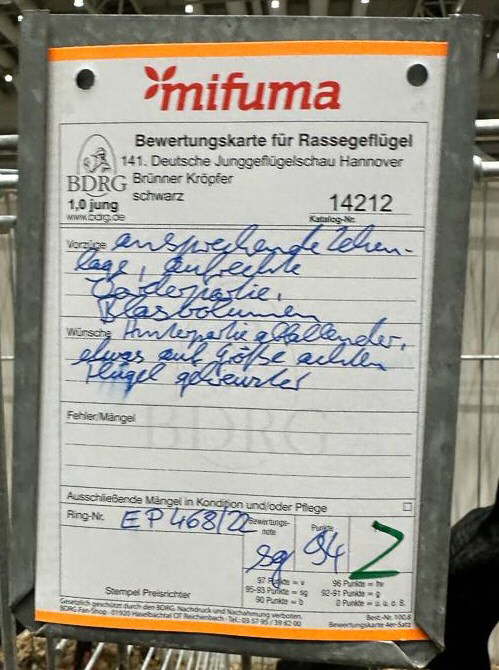 mifuma
Bewertungskarte für Rassegeflügel
141. Deutsche Junggeflügelschau Hannover
BDRG
Brünner Kröpfer
1,0 jung
schwarz
14212
www.bdrg.de
Katalog-Nr.
Vorzüge ansprechende
lage, aufrechte
Vorderpartie,
Blasvolumen
Wünsche Hinterpartie abfallender,
etwas auf Größe achten
Flügel gekreuzter
Fehler/Mängel
BDRG
Ausschließende Mängel in Kondition und/oder Pflege
Ring-Nr. EP 468/22
Bewertungs-
note
sg
Punkte
94
Z
97 Punkte = v
96 Punkte = hv
95-93 Punkte = sg
92-91 Punkte = g
90 Punkte = b
0 Punkte = u, o. B.
Stempel Preisrichter
Gesetzlich geschützt durch den BDRG, Nachdruck und Nachahmung verboten.
BDRG Fan-Shop · 01920 Haselbachtal OT Reichenbach · Tel.: 03 57 95 / 39 62 00
Best.-Nr. 100.6
Bewertungskarte 4er-Satz